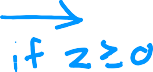 →
if z ≥ 0